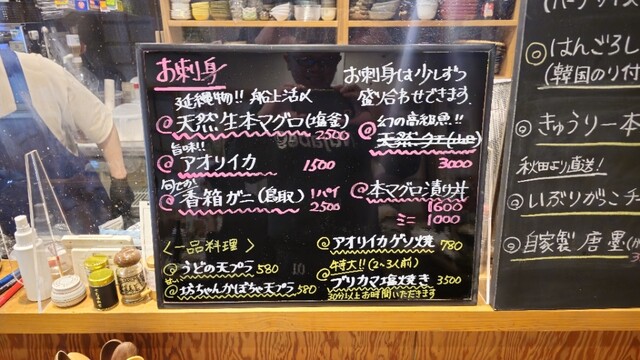 お刺身
延縄物!! 船上活〆
@天然生本マグロ(塩釜)
2500
旨味!!
@アオリイカ 1500
@香箱ガニ(鳥取) 1パイ
2500
お刺身は少しずつ
盛り合わせできます.
幻の高級魚!!
@天然クエ
3000
@本マグロ漬け丼
1600
ミニ 1000
〈一品料理〉
@うどの天プラ 580
@坊ちゃんかぼちゃ天プラ 580
@アオリイカゲソ焼 780
特大!! (2〜3人前)
@ブリカマ塩焼き 3500
30分以上お時間いただきます
(韓国のり付
きゅうり一本
秋田より直送!
いぶりがっこチ
自家製 唐墨